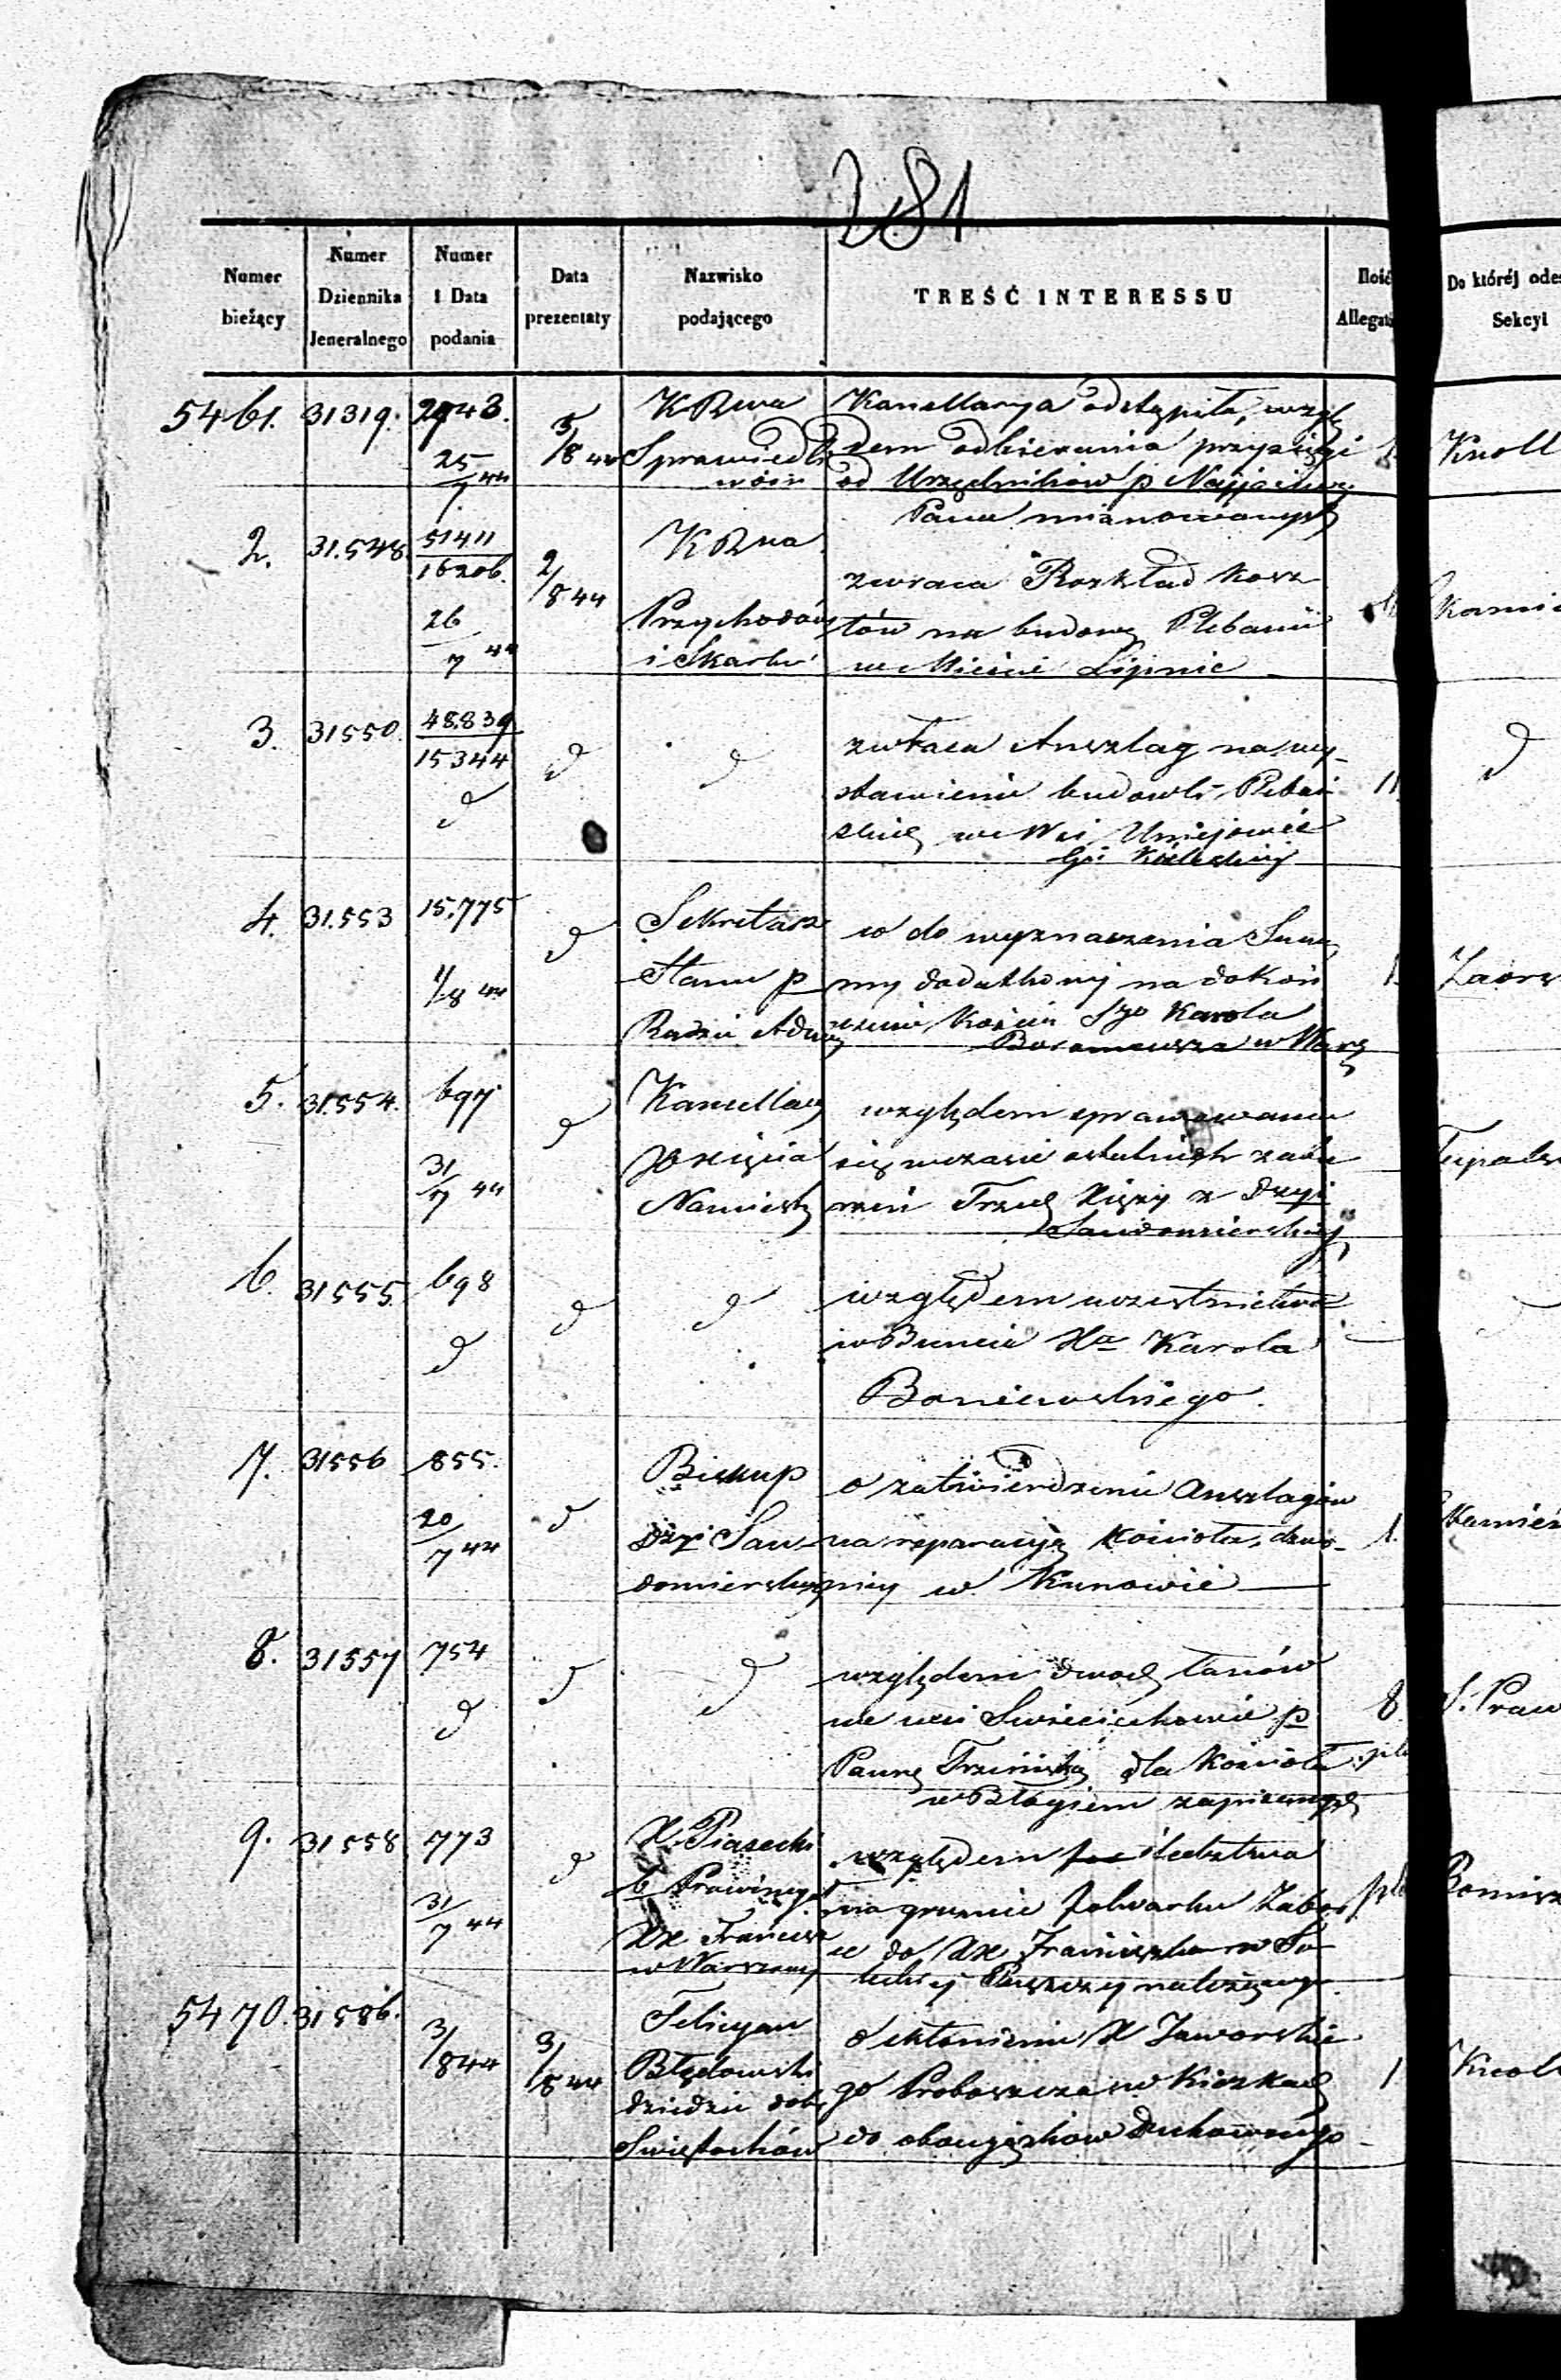 281
Numer bieżący | Numer Dziennika Jeneralnego | Numer i Data podania | Data prezentaty | Nazwisko podającego | TREŚĆ INTERESSU | Ilość | Do któréj Sekcyi
5461. 31319. 2943. 25/7 44 3/8 44
K R wa
Kancellarya odstąpiła, wzglę
dem odbierania przysięgi
od Urzędników p Najjaśn
Pana mianowanych
Knoll
2. 31.548. 51411/16206. 26/7 44 2/8 44
K R wa
Przychodów
i Skarbu
zwraca Rozkład kosz
tów na budowę Plebanii
w Mieście Lipnie
3. 31550. 48.839/15344 d d d
zwraca Anszlag na wy-
stawienie budowli Plebań
skich we Wsi Uniejowie
Gii Kieleckiej
11.
d
4. 31.553 15.775 1/8 44 d
Sekretarz
Stanu p
Radzie Admi
w do wyznaczenia Sum
my dodatkowej na dokoń
czenie Kościoła Sgo Karola
Boromeusza w Warz
1.
5. 31.554. 697 31/7 44 d
Kancellary
Xsięcia
Namiestn
względem sprawowania
się wczasie ostatnich zabu
rzeń Trzech Xięży z Dyzi
Sandomierskiej
6. 31555. 698 d d d
względem uczestnictwa
w Buncie Xa Karola
Boniewskiego.
7. 31556 855. 20/7 44 d
Biskup
Dyzi San-
domierskiej
o zatwierdzenie Anszlagów
na reparacyą Kościoła, dzwo-
nicy w Kunowie
1.
8. 31557 754 d d d
względem dwóch łanów
we wsi Swieciechowie p
Pannę Trzcińską dla Kościoła
zapisanych
8.
S. Praw
9. 31558 773 31/7 44 d
X. Piasecki
b Prowincyał
XX Francisz
w Warszawy
względem śledztwa
na gruncie folwarku Zabor
do XX Franciszka w So
leckiej Puszczy należącego.
5470. 31586. 3/844 3/8 44
Felicyan
Błędowski
dziedzic dob
Swiętochów
o skłonienie X Jaworskie
go Proboszcza w Kiczkach
do obowiązków Duchownego
1